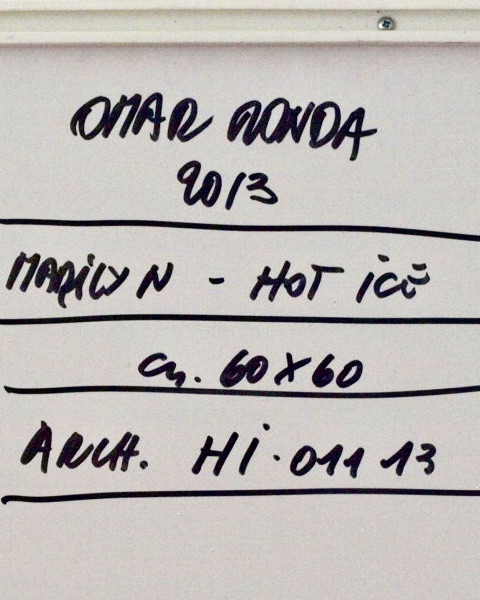 OMAR RONDA
2013
MARiLYN - HOT iCE
cm. 60X60
ARCH. Hi. 011 13